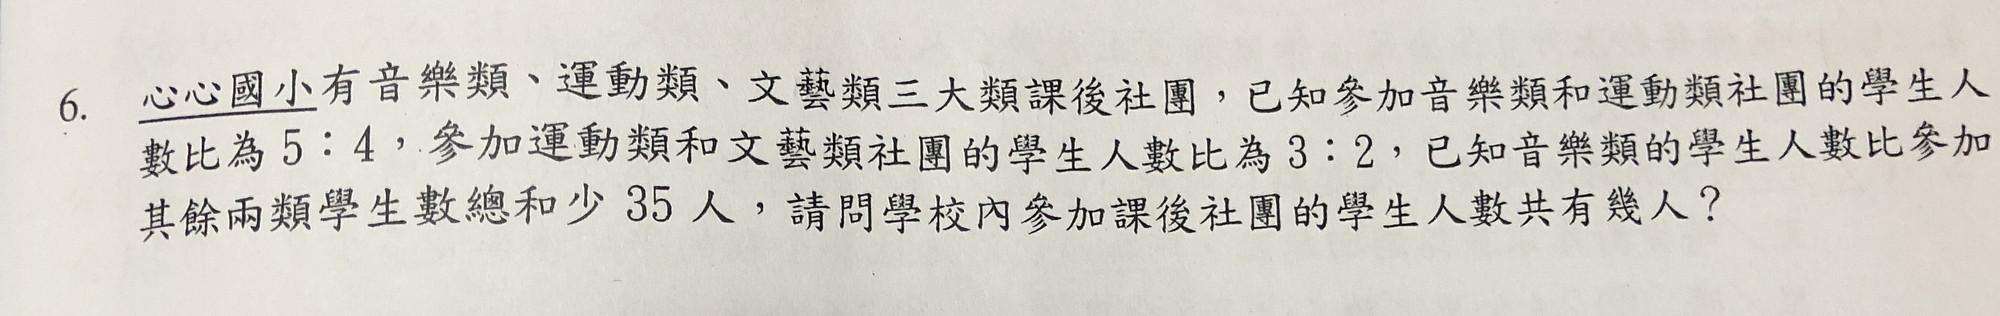 6. 心心國小有音樂類、運動類、文藝類三大類課後社團，已知參加音樂類和運動類社團的學生人
數比為 5：4，參加運動類和文藝類社團的學生人數比為 3：2，已知音樂類的學生人數比參加
其餘兩類學生數總和少 35 人，請問學校內參加課後社團的學生人數共有幾人？